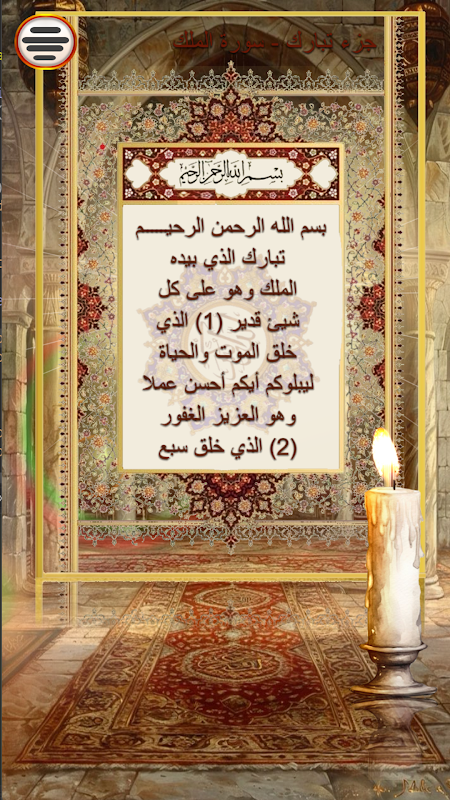 جزء تبارك - سورة الملك
بسم الله الرحمن الرحيم
بسم الله الرحمن الرحيـــم
تبارك الذي بيده
الملك وهو على كل
شيئ قدير (1) الذي
خلق الموت والحياة
ليبلوكم أيكم أحسن عملا
وهو العزيز الغفور
(2) الذي خلق سبع